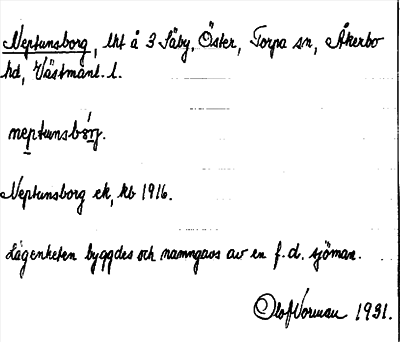 Neptunsborg, lht å 3 Säby, Öster, Torpa sn, Åkerbo
hd, Västmanl. l.
neptunsbórg.
Neptunsborg ek, kb 1916.
Lägenheten byggdes och namngavs av en f.d. sjöman.
Olof Norman 1931.